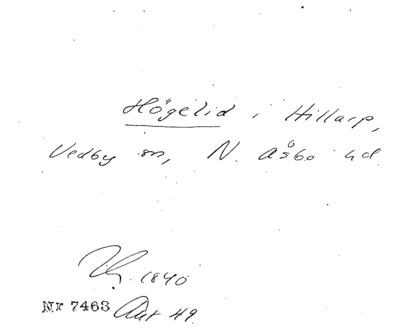 Högelid i Hillarp,
Vedby sn, N. Åsbo hd
1840
Nr 7463 Avt 49